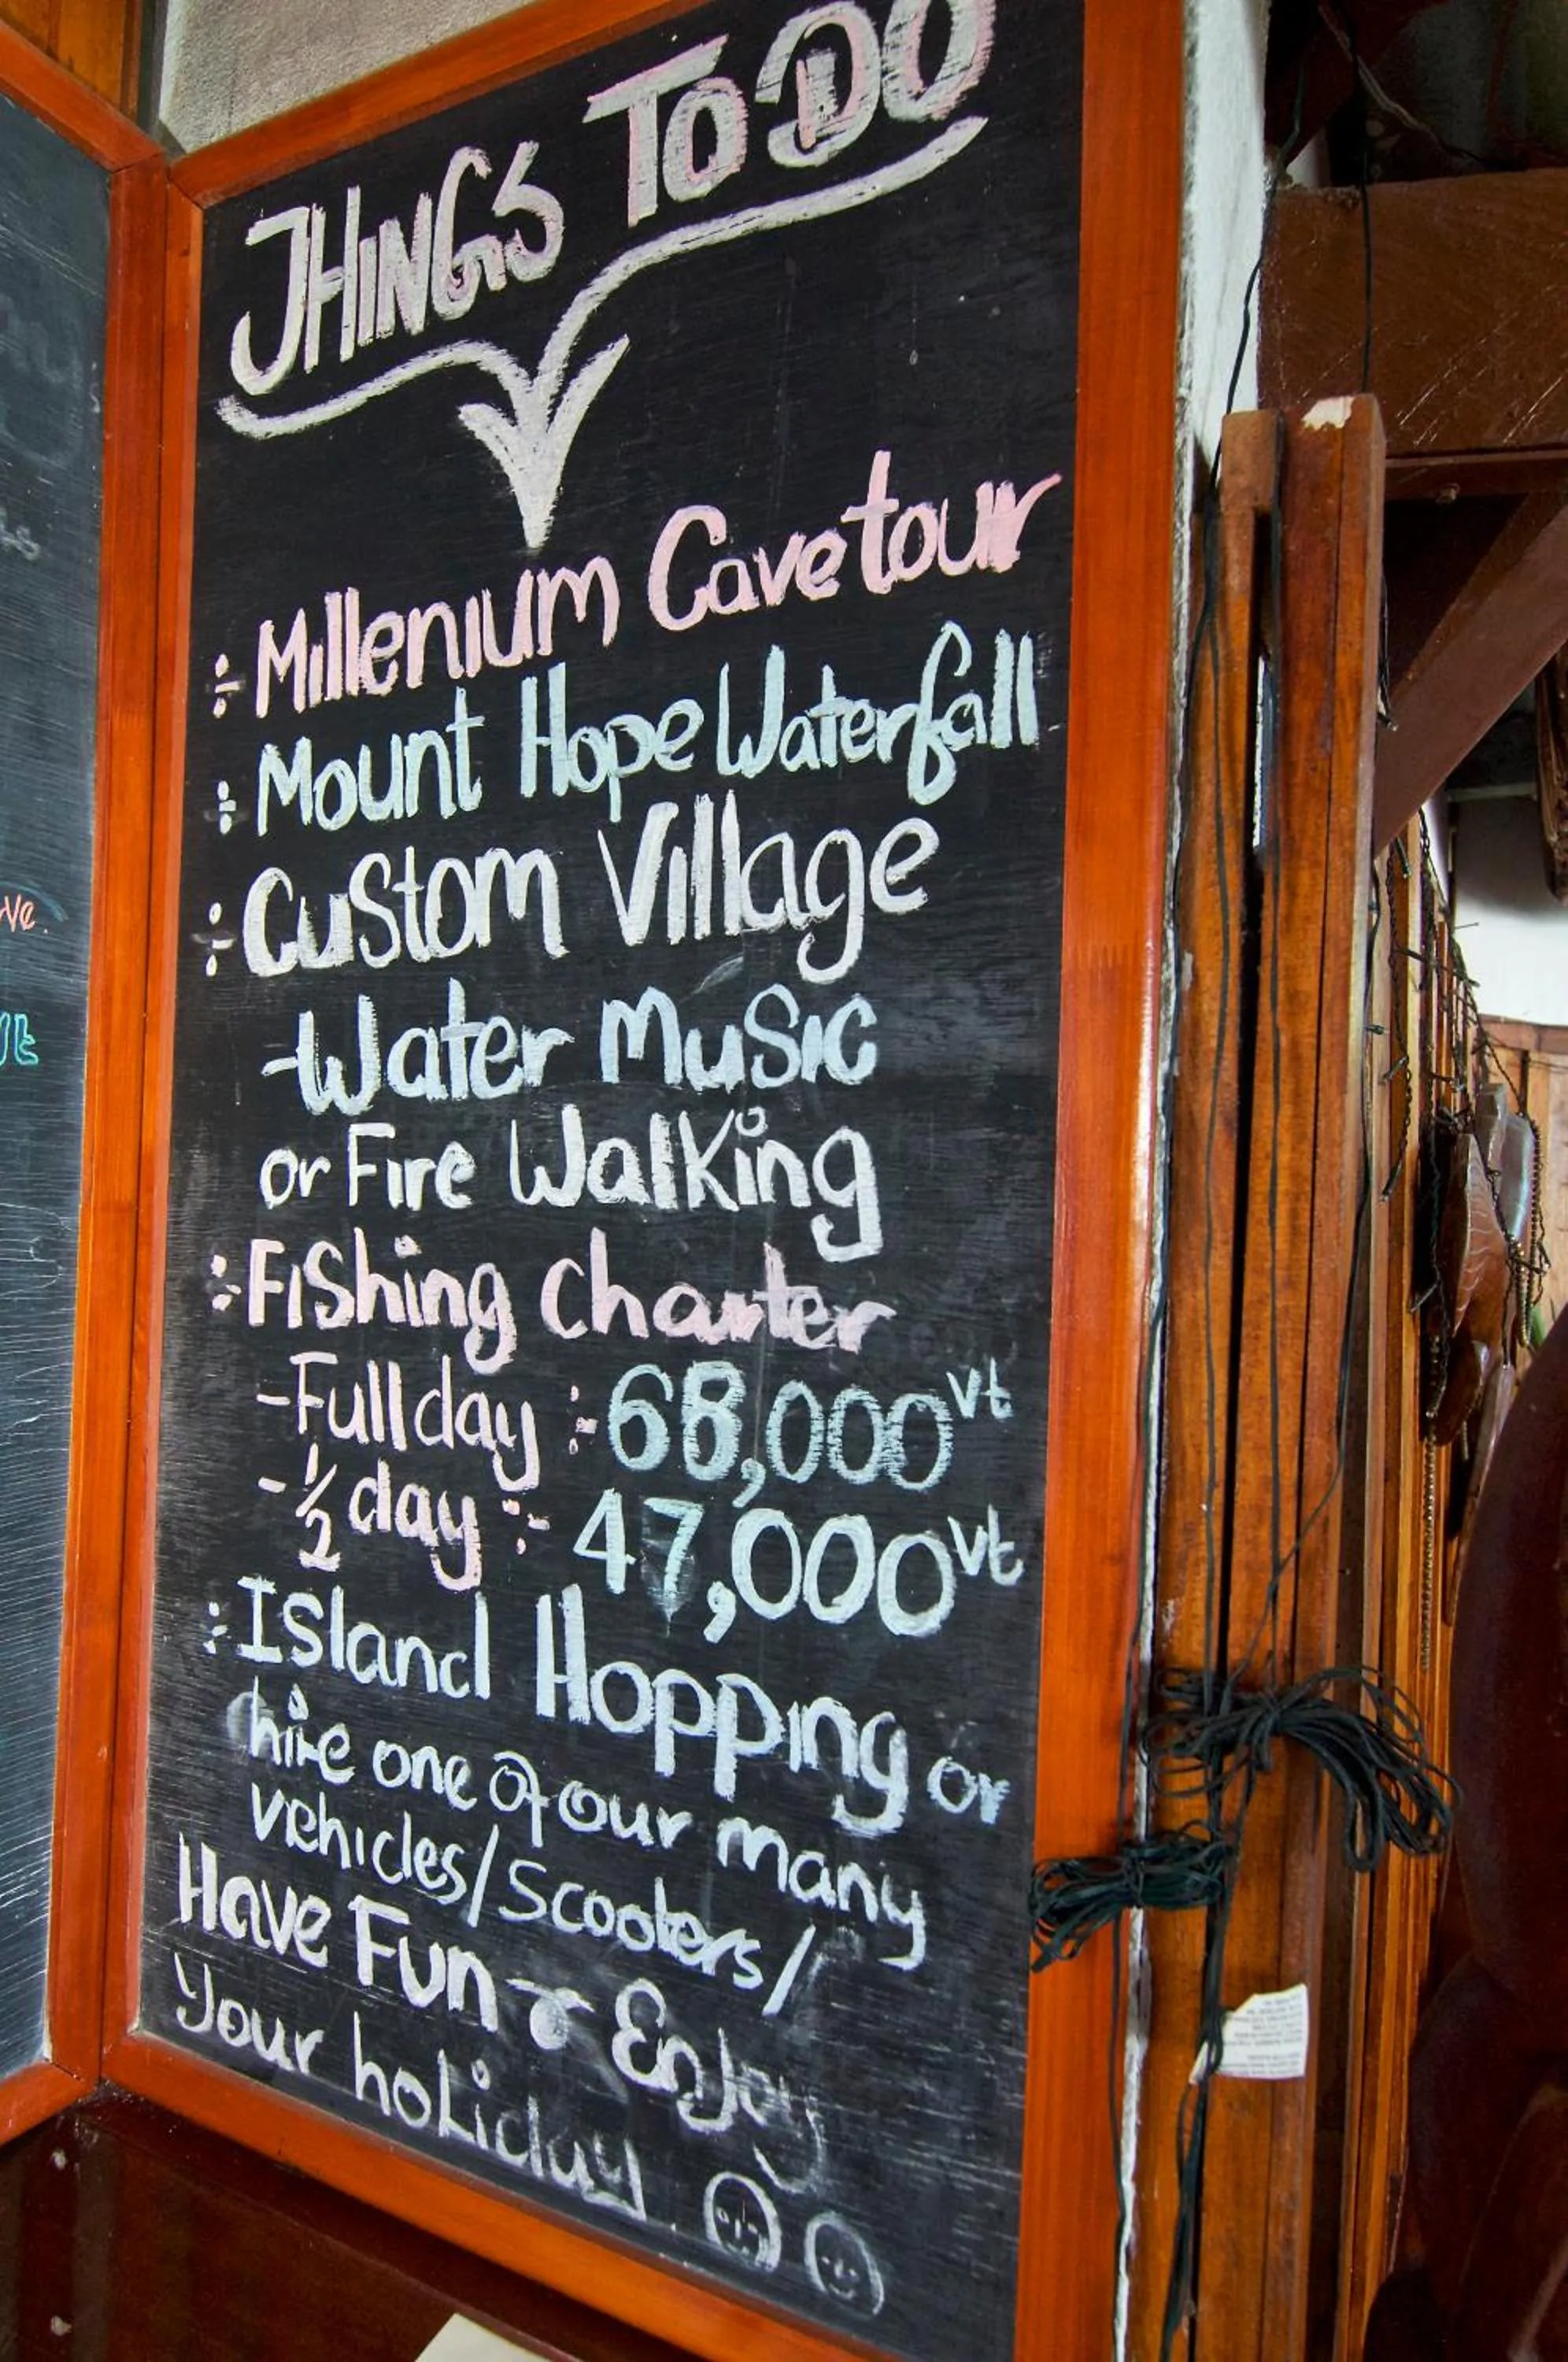 THINGS TO DO
÷ Millenium Cave tour
÷ Mount Hope Waterfall
÷ Custom Village
- Water Music
or Fire Walking
:- Fishing Charter
- Full day :- 68,000 vt
- 1/2 day :- 47,000 vt
: Island Hopping or
hire one of our many
vehicles/Scooters/
Have Fun & Enjoy
your holiday